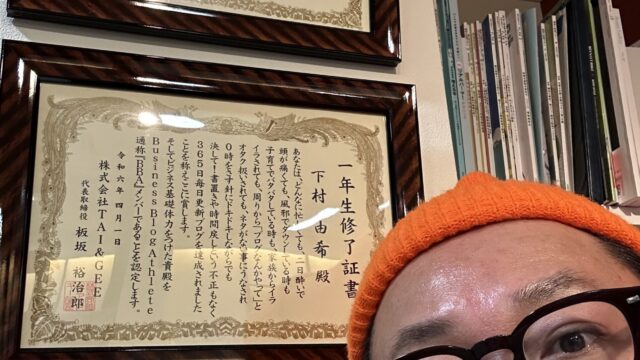 一年生修了証書
下村 由希 殿
あなたは、どんなに忙しくても、二日酔いで
頭が痛くても、風邪でダウンしている時も
子育てでバタバタしている時も、家族からイラ
イラされても、周りから「ブログなんかやって」と
オタク扱いされても、ネタがない事にうなされ
0時をさす針にドキドキしながらでも
決して!書置きや時間戻しという不正もなく
365日毎日更新ブログを達成されました
ことを称えここに賞します。
そしてビジネス基礎体力をつけた貴殿を
Business Blog Athlete
通称『BBA』メンバーであることを認定します。
令和六年四月一日
株式会社TAI&GEE
代表取締役 板坂 裕治郎